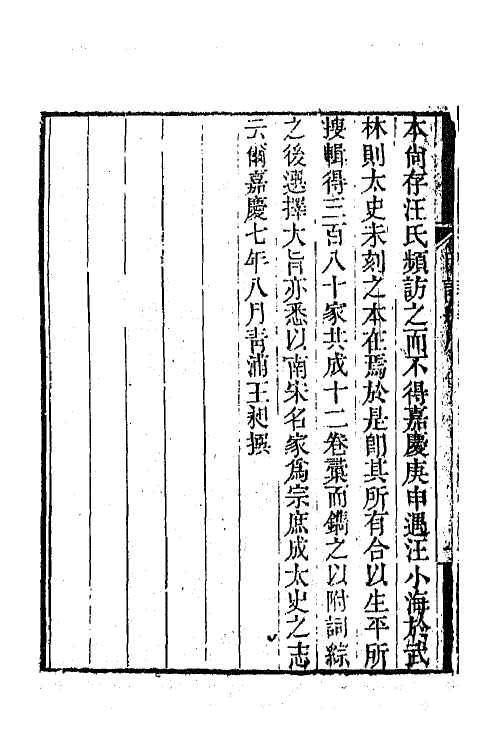 本尚存汪氏頻訪之而不得嘉慶庚申遇汪小海於武
林則太史未刻之本在焉於是即其所有合以生平所
搜輯得三百八十家共成十二卷彚而鐫之以附詞綜
之後選擇大旨亦悉以南宋名家為宗庶成太史之志
云爾嘉慶七年八月青浦王昶撰